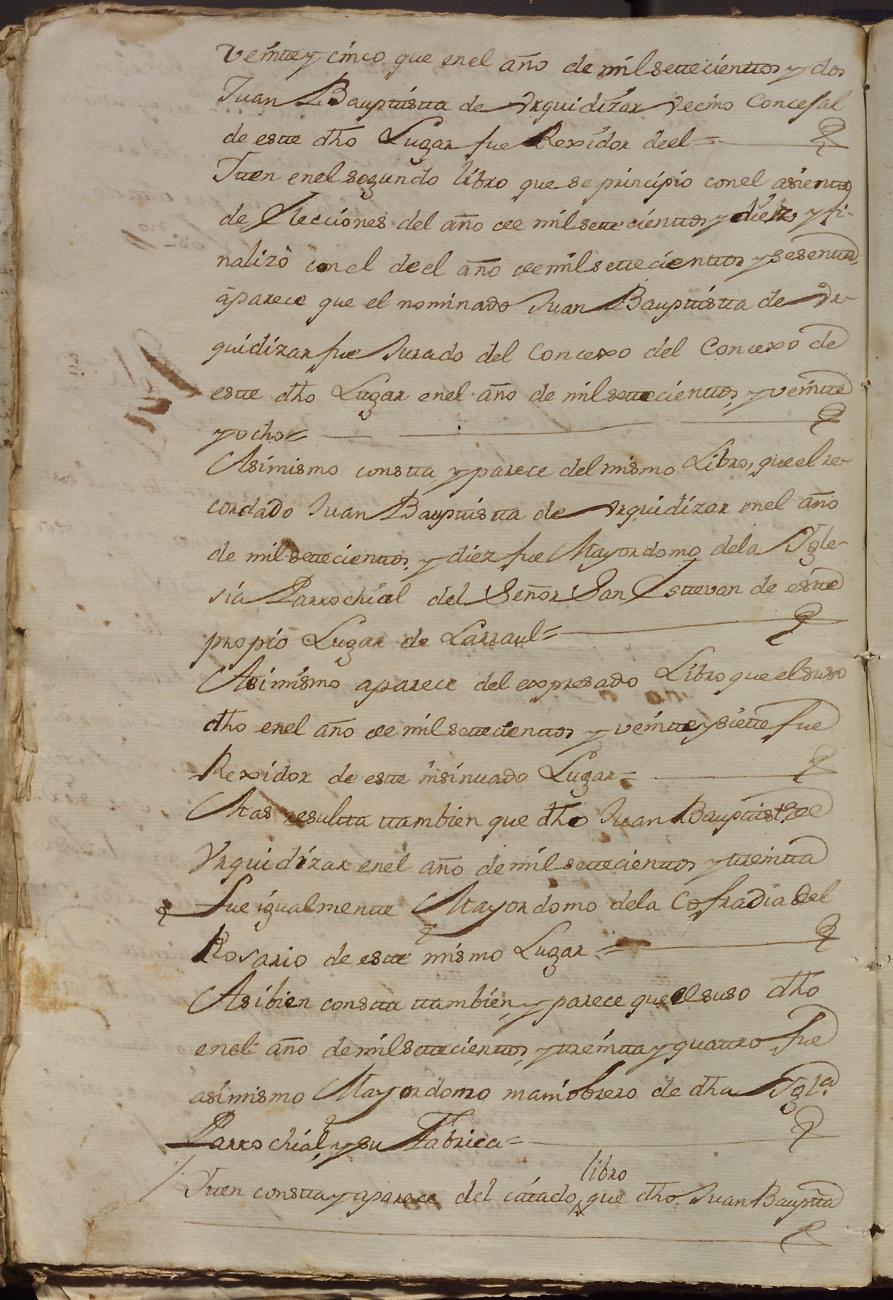 Veintte y cinco que en el año de mil settecienttos y dos
Juan Bauptistta de Vrquidizar Vecino Concejal
de estte dho Lugar fue Rexidor de el=
Itten en el segundo libro que se principio con el asientto
de Elecciones del año de mil settecienttos y diez y fi-
nalizò con el de el año de mil settecienttos y sesentta,
aparece que el nominado Juan Bauptistta de Vr-
quidizar fue Jurado del Concexo del Concexo de
estte dho Lugar en el año de mil settecienttos, y veintte
y ocho=
Asimismo constta y parece del mismo Libro, que el re-
cordado Juan Bauptistta de Vrquidizar en el año
de mil settecienttos, y diez fue Mayordomo de la Ygle-
sia Parrochial del Señor San Esttevan de estte
propio Lugar de Larraul=
Asimismo aparece del expresado Libro que el suso
dho en el año de mil settecienttos y veintte y siette fue
Rexidor de estte insinuado Lugar=
Mas resultta ttambien que dho Juan Bauptistta de
Vrquidizar en el año de mil settecienttos y treintta
fue igualmentte Mayordomo de la Cofradia del
Rosario de estte mismo Lugar=
Asibien constta ttambien, y parece que el suso dho
en el año de mil settecienttos, y treintta y quattro fue
asimismo Mayordomo manobrero de dha Yglª
Parrochial, y su Fabrica=
Itten constta y aparece del cittado libro, que dho Juan Bauptta